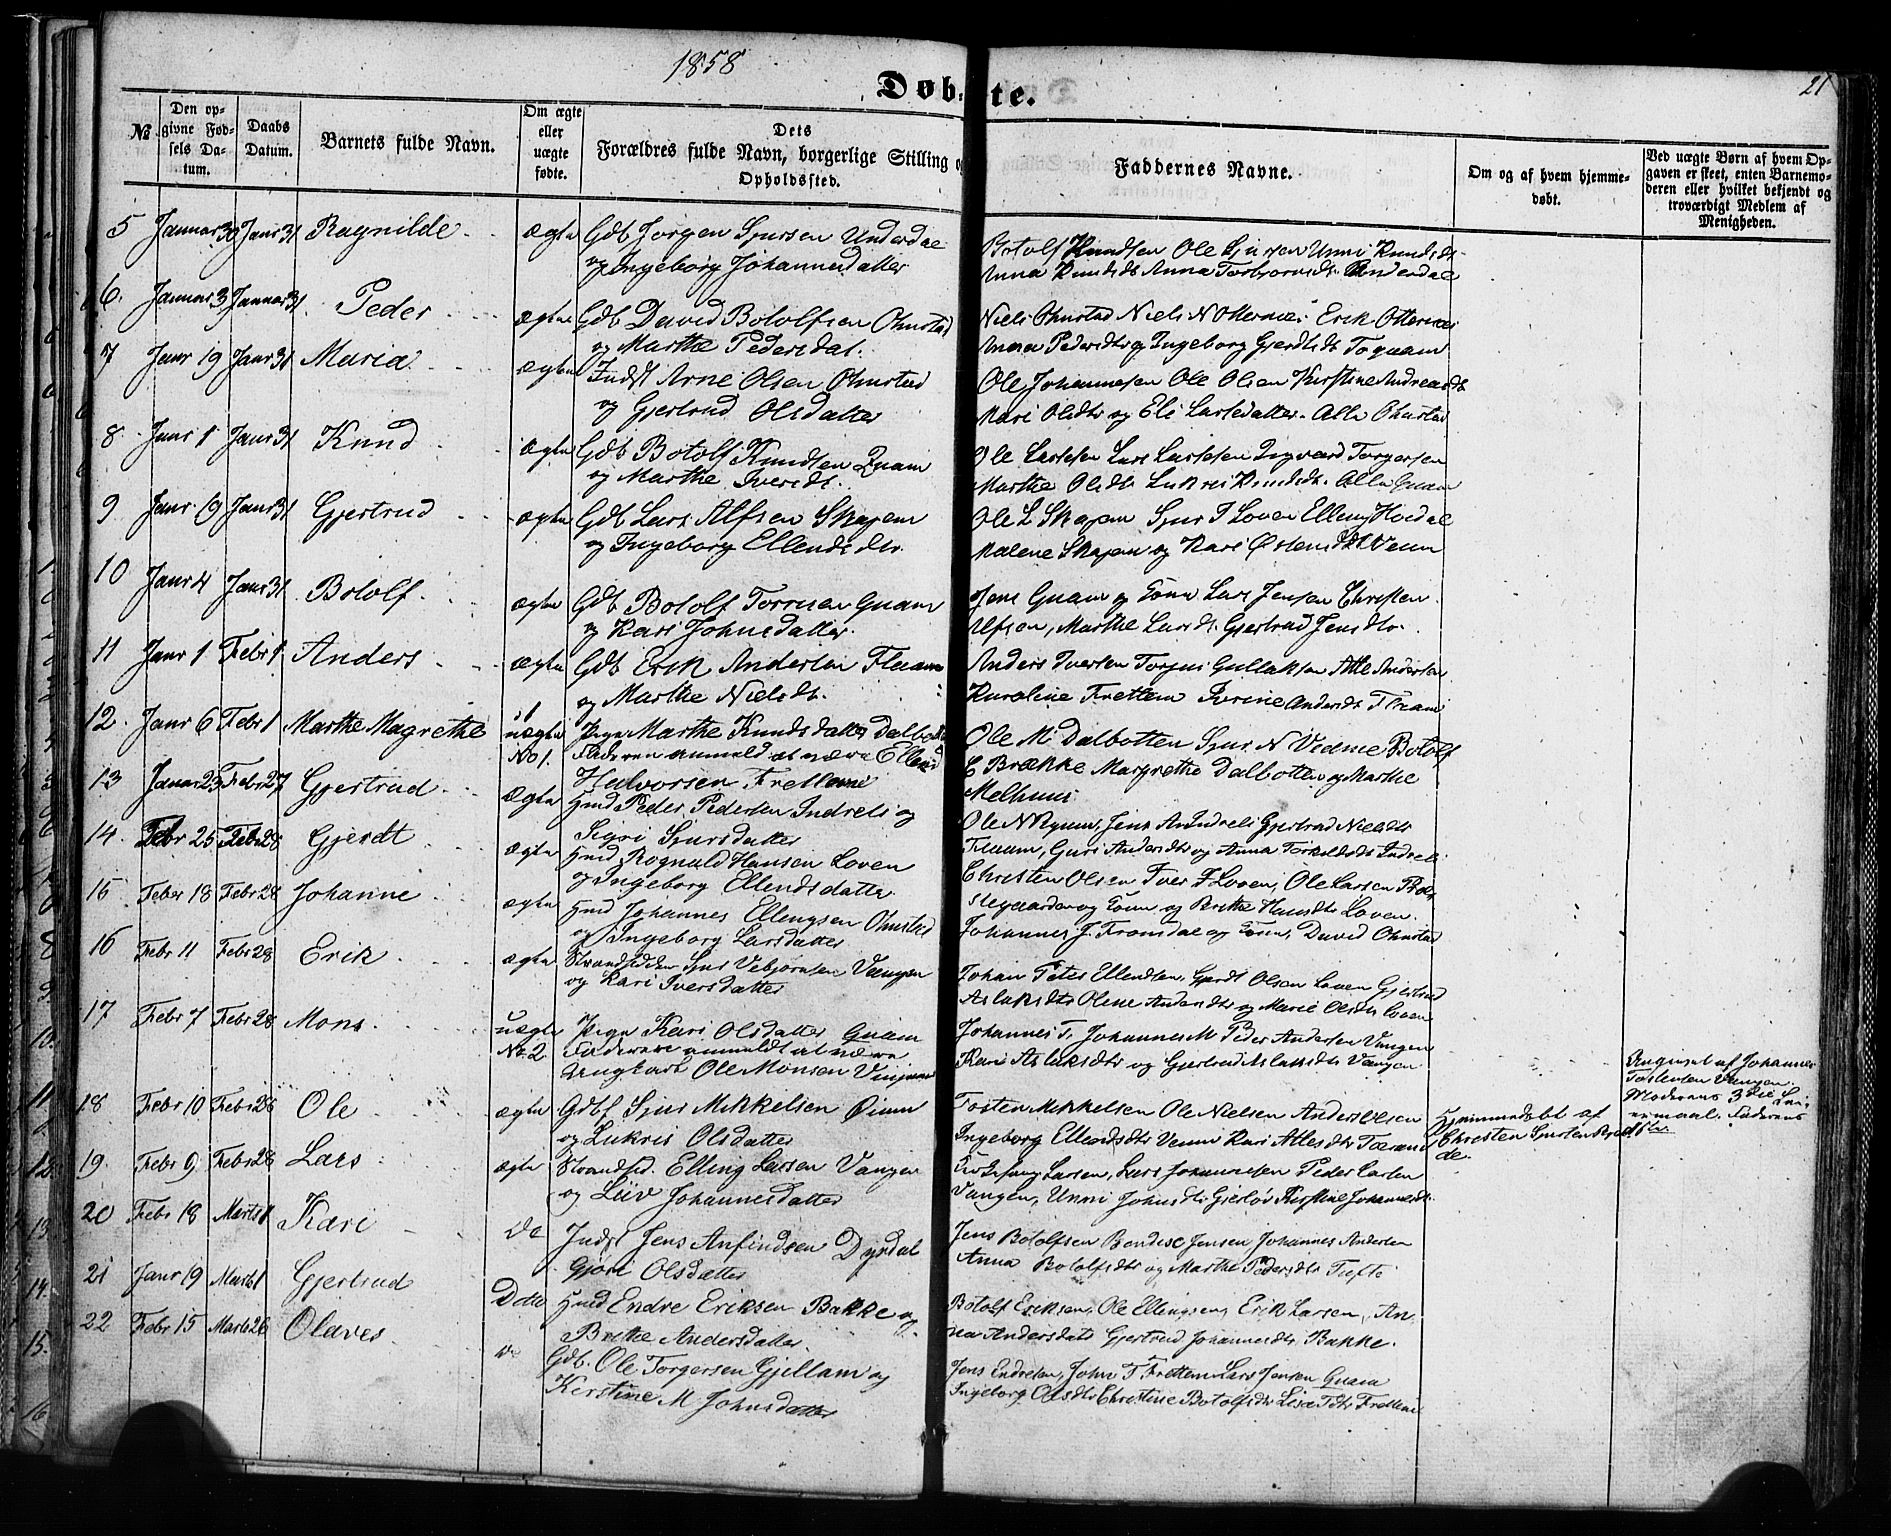 1858
Døbte.
21
№
Den opgivne Fødsels Datum.
Daabs Datum.
Barnets fulde Navn.
Om ægte eller uægte fødte.
Dets Forældres fulde Navn, borgerlige Stilling og Opholdssted.
Faddernes Navne.
Om og af hvem hjemmedøbt.
Ved uægte Børn af hvem Opgaven er skeet, enten Barnemoderen eller hvilket bekjendt og troværdigt Medlem af Menigheden.
5 Januar 30 Janr 31 Ragnilde ægte Gdb Jørgen Sjursen Underdal
og Ingeborg Johannesdatter
Botolf Knudsen Ole Sjursen Unni Knudsdt
Anna Knudsdt Anna Torbjørnsdt. Underdal
6. Januar 3 Januar 31 Peder ægte Gdb David Botolfsen Ohnstad
og Marthe Pedersdat.
Niels Ohnstad Niels N Otternæs Erik Otternæs
Anna Pedersdt og Ingeborg Gjerdtsdt
7 Janr 19 Janr 31 Maria ægte Indst Arne Olsen Ohnstad
og Gjertrud Olsdatter
Ole Johannesen Ole Olsen Kerstine Andreasdt
Mari Olsdtr og Eli Larsdatter. Alle Ohnstad
8 Janr 1 Janr 31 Knud ægte Gdb Botolf Knudsen Quam
og Marthe Iversdt.
Ole Larssen Lars Larssen Ingvard Torgersen
Marthe Olsdtr Lukris Knudsdt. Alle Quam
9 Janr 19 Janr 31 Gjertrud ægte Gdb Lars Alfsen Skajem
og Ingeborg Ellendsdtr.
Ole L Skajem Sjur I Loven Elling Hovdal
Malene Skajem og Kari Østensdt Venn
10 Janr 4 Janr 31 Botolf ægte Gdb Botolf Quam
og Kari Johnsdatter.
Jens Quam og Lars Jensen Christen
Ulfsen, Marthe Larsdt. Gjertrud Jensdtr.
11 Janr 1 Febr 1 Anders ægte Gdb Erik Andersen Flaam
og Marthe Nielsdt.
Anders Iversen Torjus Gullaksen Atle Andersen
Karoline Frettem Andersdt Flaam
12. Janr 6 Febr 1 Marthe Magrethe uægte No 1. Pige Marthe Knudsdatter Dalbotten
Faderen anmeldt at være Ellend
Halvorsen Frettem
Ole M. Dalbotten Sjur N Vedme Botolf
E Brække Margrethe Dalbotten og Marthe
Melhuus
13 Januar 23 Febr 27 Gjertrud ægte Hmd Peder Pedersen Indreli og
Sigri Sjursdatter
Ole N Ryum, Jens A Indreli Gjertrud Nielsdtr
Flaam, Guri Andersdtr og Anna Torkildsdt Indreli
14. Febr 25 Febr 28 Gjerdt ægte Hmd Rognald Hansen Loven
og Ingeborg Ellendsdatter
Christen Olsen Iver I Loven, Ole Larsen
og Brithe Hansdtr Loven.
15 Feber 18 Febr 28 Johanne ægte Hmd Johannes Ellingsen Ohnstad
og Ingeborg Larsdatter
Johannes J. Fromdal og David Ohnstad
16 Febr 11 Febr 28 Erik ægte Strandsidden Sjur Vebjørnsen Vangen
og Kari Iversdatter
Johan Peter Ellendsen, Gjerdt Olsen Loven Gjertrud
Aslaksdtr Olene Andersdtr og Marie Olsdtr Loven
17 Febr 7 Febr 28 Mons uægte No 2. Pige Kari Olsdatter Quam
Faderen anmeldt at være
Ungkarl Ole Monsen
Johannes T. Johannes M Peder Andersen Vangen
Kari Aslaksdtr og Gjertrud Aslaksdtr Vangen
Angivet af Johannes
Tostensen Vangen.
Moderens 3die Lei-
ermaal. Faderens
1ste
18 Febr 10 Febr 28 Ole ægte Gdbf Sjur Mikkelsen
og Lukris Olsdatter
Tosten Mikkelsen Ole Nielsen Anders Olsen
Ingeborg Ellendsdtr Venn Kari Atlesdtr
Hjemmedøbt af
Christen Sjursen
19. Febr 9 Febr 28 Lars ægte Strandsid. Elling Larsen Vangen
og Liiv Johannesdatter
Larsen, Lars Johannesen Peder Larsen
Vangen, Unni Johnsdtr Gjerløv Kirstine Johannesdt.
20 Febr 18 Marts 1 Kari do Indst Jens Anfindsen Dyrdal
Gjøri Olsdatter
Jens Botolfsen Bendix Jensen Johannes Andersen
Anna Botolfsdtr og Marthe Pedersdtr Tufte
21 Janr 19 Marts 1 Gjertrud Ditto Hmd Endre Eriksen Bakke og
Brithe Andersdatter.
Botolf Eriksen, Ole Ellingsen, Erik Larsen, An-
na Andersdatr Gjertrud Johannesdtr Bakke.
22 Febr 15 Marts 26 Olaves do Gdb. Ole Torgersen Gjellam og
Kerstine M Johnsdatter
Jens Endresen, John T Frettem Lars Jensen Quam
Ingeborg Olsdtr Christine Botolfsdtr Lise Frettem